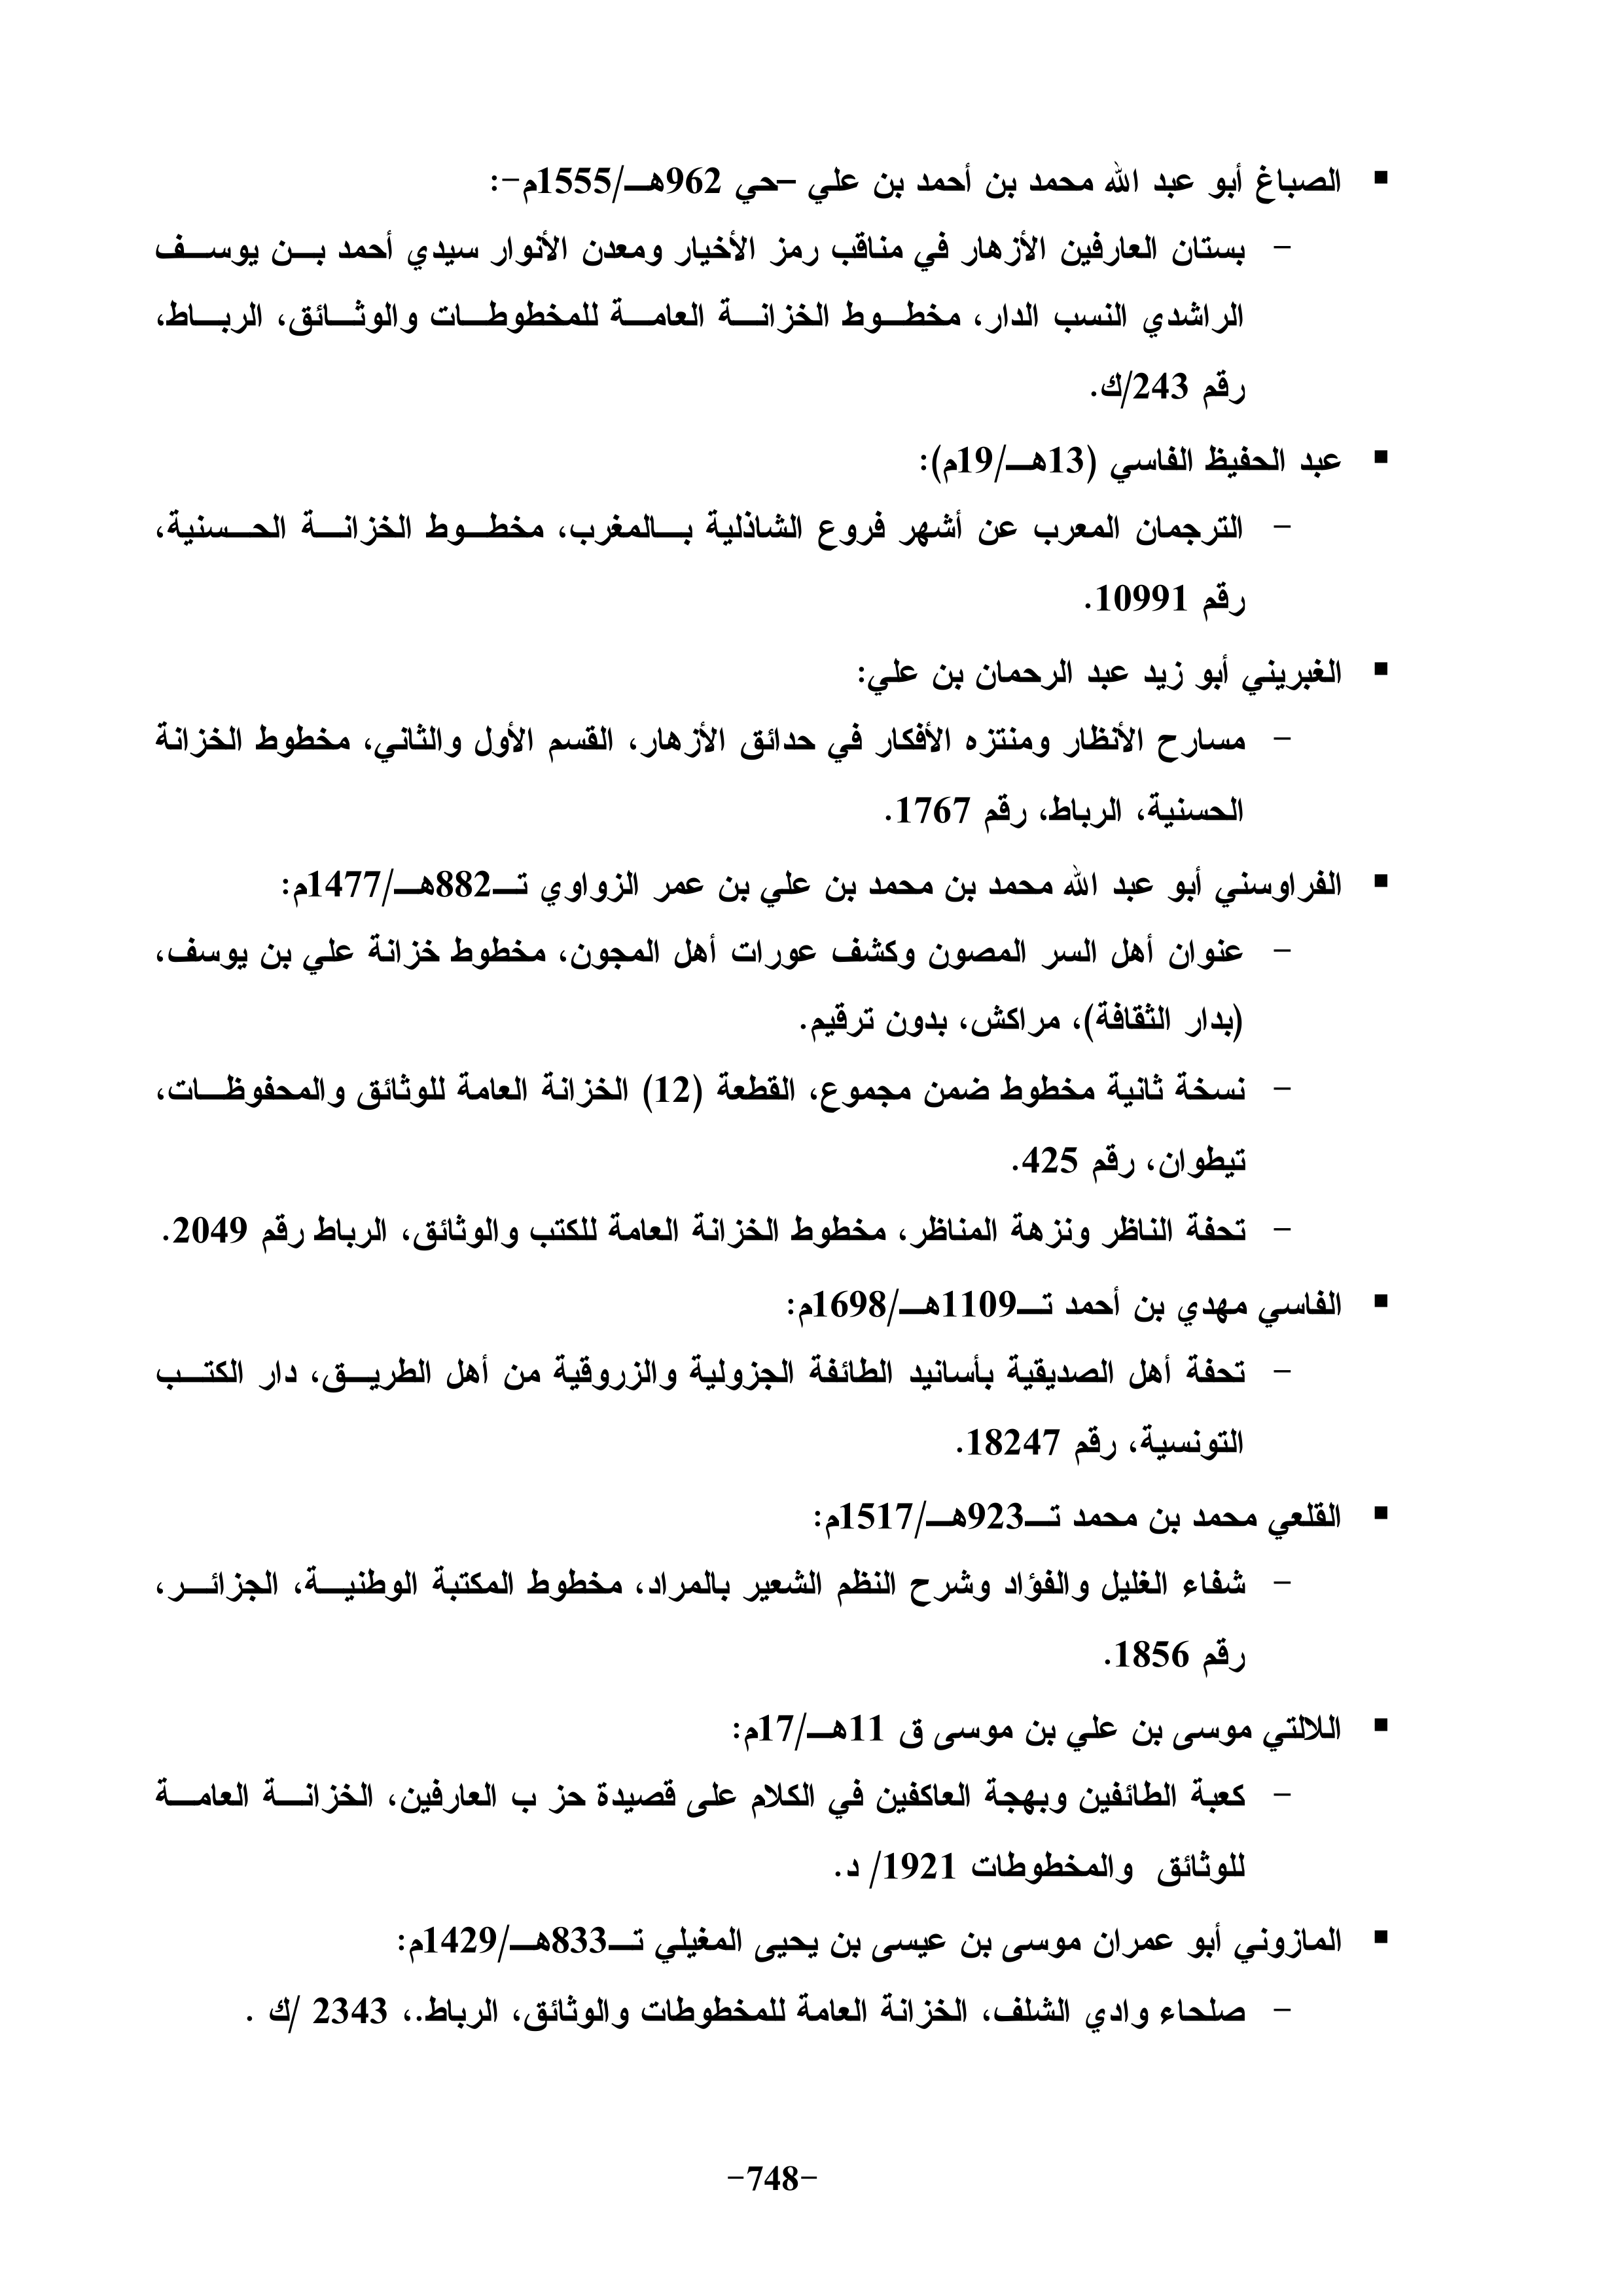 ▪ الصباغ أبو عبد الله محمد بن أحمد بن علي –حي 962هـ/1555م-:
- بستان العارفين الأزهار في مناقب رمز الأخيار ومعدن الأنوار سيدي أحمد بن يوسف
الراشدي النسب الدار، مخطوط الخزانة العامة للمخطوطات والوثائق، الرباط،
رقم 243/ك.
▪ عبد الحفيظ الفاسي (13هـ/19م):
- الترجمان المعرب عن أشهر فروع الشاذلية بالمغرب، مخطوط الخزانة الحسنية،
رقم 10991.
▪ الغبريني أبو زيد عبد الرحمان بن علي:
- مسارح الأنظار ومنتزه الأفكار في حدائق الأزهار، القسم الأول والثاني، مخطوط الخزانة
الحسنية، الرباط، رقم 1767.
▪ الفراوسني أبو عبد الله محمد بن محمد بن علي بن عمر الزواوي تـ882هـ/1477م:
- عنوان أهل السر المصون وكشف عورات أهل المجون، مخطوط خزانة علي بن يوسف،
(بدار الثقافة)، مراكش، بدون ترقيم.
- نسخة ثانية مخطوط ضمن مجموع، القطعة (12) الخزانة العامة للوثائق والمحفوظات،
تيطوان، رقم 425.
- تحفة الناظر ونزهة المناظر، مخطوط الخزانة العامة للكتب والوثائق، الرباط رقم 2049.
▪ الفاسي مهدي بن أحمد تـ1109هـ/1698م:
- تحفة أهل الصديقية بأسانيد الطائفة الجزولية والزروقية من أهل الطريق، دار الكتب
التونسية، رقم 18247.
▪ القلعي محمد بن محمد تـ923هـ/1517م:
- شفاء الغليل والفؤاد وشرح النظم الشعير بالمراد، مخطوط المكتبة الوطنية، الجزائر،
رقم 1856.
▪ اللالتي موسى بن علي بن موسى ق 11هـ/17م:
- كعبة الطائفين وبهجة العاكفين في الكلام على قصيدة حز ب العارفين، الخزانة العامة
للوثائق والمخطوطات 1921/ د.
▪ المازوني أبو عمران موسى بن عيسى بن يحيى المغيلي تـ833هـ/1429م:
- صلحاء وادي الشلف، الخزانة العامة للمخطوطات والوثائق، الرباط.، 2343 /ك .
-748-